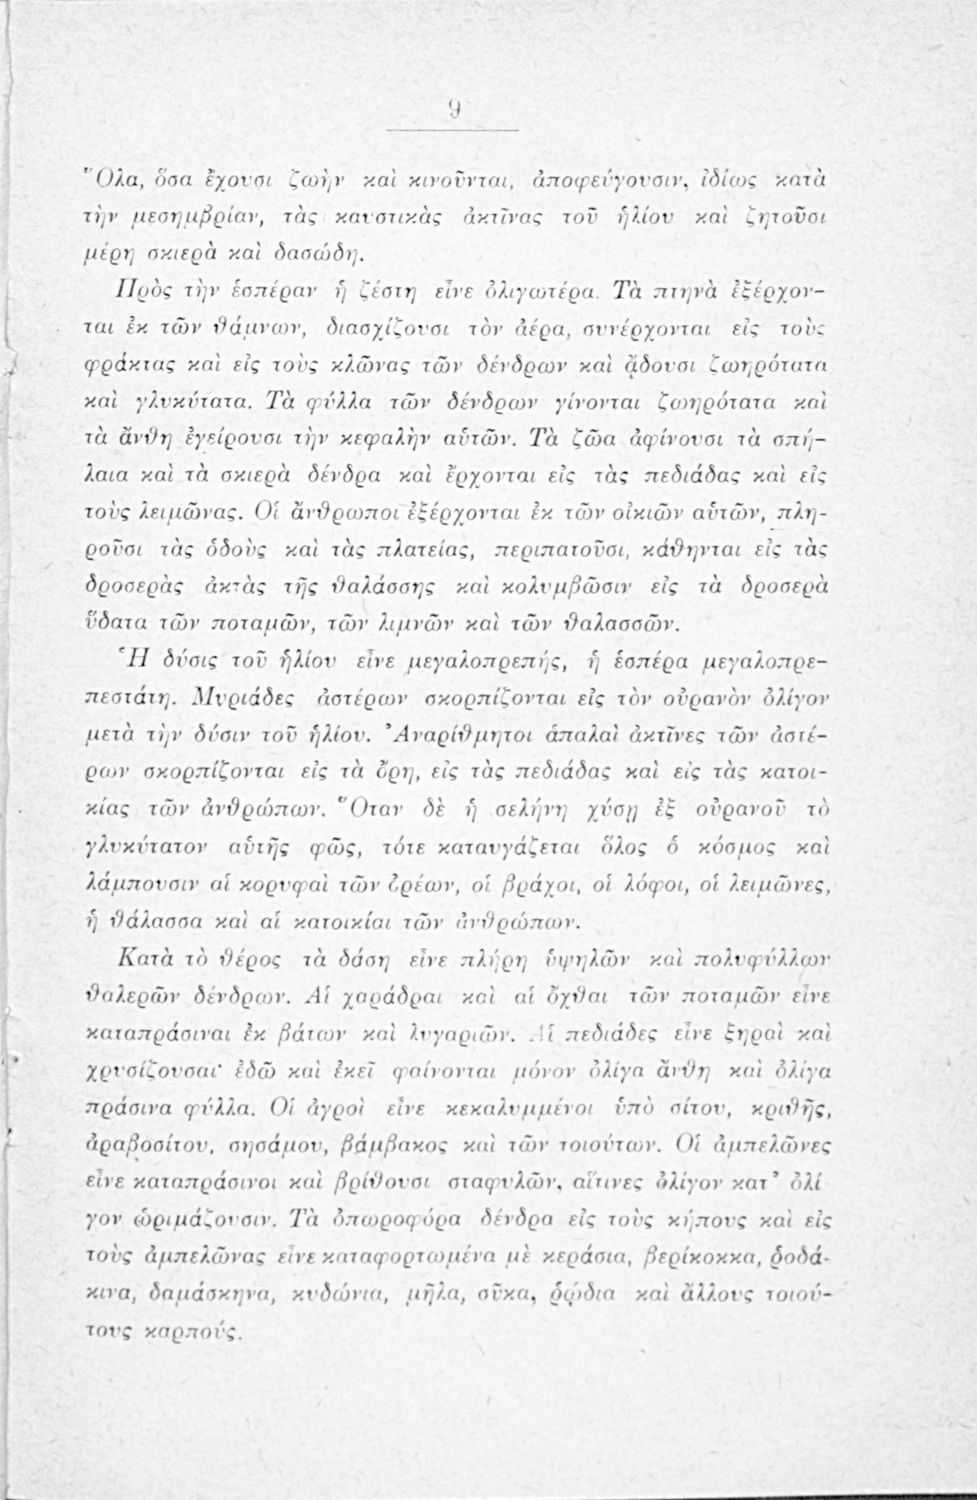 9
Ὅλα, ὅσα ἔχουσι ζωὴν καὶ κινοῦνται, ἀποφεύγουσιν, ἰδίως κατὰ
τὴν μεσημβρίαν, τὰς καυστικὰς ἀκτῖνας τοῦ ἡλίου καὶ ζητοῦσι
μέρη σκιερὰ καὶ δασώδη.
Πρὸς τὴν ἑσπέραν ἡ ζέστη εἶνε ὀλιγωτέρα. Τὰ πτηνὰ ἐξέρχον-
ται ἐκ τῶν θάμνων, διασχίζουσι τὸν ἀέρα, συνέρχονται εἰς τοὺς
φράκτας καὶ εἰς τοὺς κλῶνας τῶν δένδρων καὶ ᾄδουσι ζωηρότατα
καὶ γλυκύτατα. Τὰ φύλλα τῶν δένδρων γίνονται ζωηρότατα καὶ
τὰ ἄνθη ἐγείρουσι τὴν κεφαλὴν αὑτῶν. Τὰ ζῶα ἀφίνουσι τὰ σπή-
λαια καὶ τὰ σκιερὰ δένδρα καὶ ἔρχονται εἰς τὰς πεδιάδας καὶ εἰς
τοὺς λειμῶνας. Οἱ ἄνθρωποι ἐξέρχονται ἐκ τῶν οἰκιῶν αὑτῶν, πλη-
ροῦσι τὰς ὁδοὺς καὶ τὰς πλατείας, περιπατοῦσι, κάθηνται εἰς τὰς
δροσερὰς ἀκτὰς τῆς θαλάσσης καὶ κολυμβῶσιν εἰς τὰ δροσερὰ
ὕδατα τῶν ποταμῶν, τῶν λιμνῶν καὶ τῶν θαλασσῶν.
Ἡ δύσις τοῦ ἡλίου εἶνε μεγαλοπρεπής, ἡ ἑσπέρα μεγαλοπρε-
πεστάτη. Μυριάδες ἀστέρων σκορπίζονται εἰς τὸν οὐρανὸν ὀλίγον
μετὰ τὴν δύσιν τοῦ ἡλίου. Ἀναρίθμητοι ἁπαλαὶ ἀκτῖνες τῶν ἀστέ-
ρων σκορπίζονται εἰς τὰ ὄρη, εἰς τὰς πεδιάδας καὶ εἰς τὰς κατοι-
κίας τῶν ἀνθρώπων. Ὅταν δὲ ἡ σελήνη χύσῃ ἐξ οὐρανοῦ τὸ
γλυκύτατον αὑτῆς φῶς, τότε καταυγάζεται ὅλος ὁ κόσμος καὶ
λάμπουσιν αἱ κορυφαὶ τῶν ὀρέων, οἱ βράχοι, οἱ λόφοι, οἱ λειμῶνες,
ἡ θάλασσα καὶ αἱ κατοικίαι τῶν ἀνθρώπων.
Κατὰ τὸ θέρος τὰ δάση εἶνε πλήρη ὑψηλῶν καὶ πολυφύλλων
θαλερῶν δένδρων. Αἱ χαράδραι καὶ αἱ ὄχθαι τῶν ποταμῶν εἶνε
καταπράσιναι ἐκ βάτων καὶ λυγαριῶν. Αἱ πεδιάδες εἶνε ξηραὶ καὶ
χρυσίζουσαι· ἐδῶ καὶ ἐκεῖ φαίνονται μόνον ὀλίγα ἄνθη καὶ ὀλίγα
πράσινα φύλλα. Οἱ ἀγροὶ εἶνε κεκαλυμμένοι ὑπὸ σίτου, κριθῆς,
ἀραβοσίτου, σησάμου, βάμβακος καὶ τῶν τοιούτων. Οἱ ἀμπελῶνες
εἶνε καταπράσινοι καὶ βρίθουσι σταφυλῶν, αἵτινες ὀλίγον κατ' ὀλί
γον ὡριμάζουσιν. Τὰ ὀπωροφόρα δένδρα εἰς τοὺς κήπους καὶ εἰς
τοὺς ἀμπελῶνας εἶνε καταφορτωμένα μὲ κεράσια, βερίκοκκα, ῥοδά-
κινα, δαμάσκηνα, κυδώνια, μῆλα, σῦκα, ῥῴδια καὶ ἄλλους τοιού-
τους καρπούς.